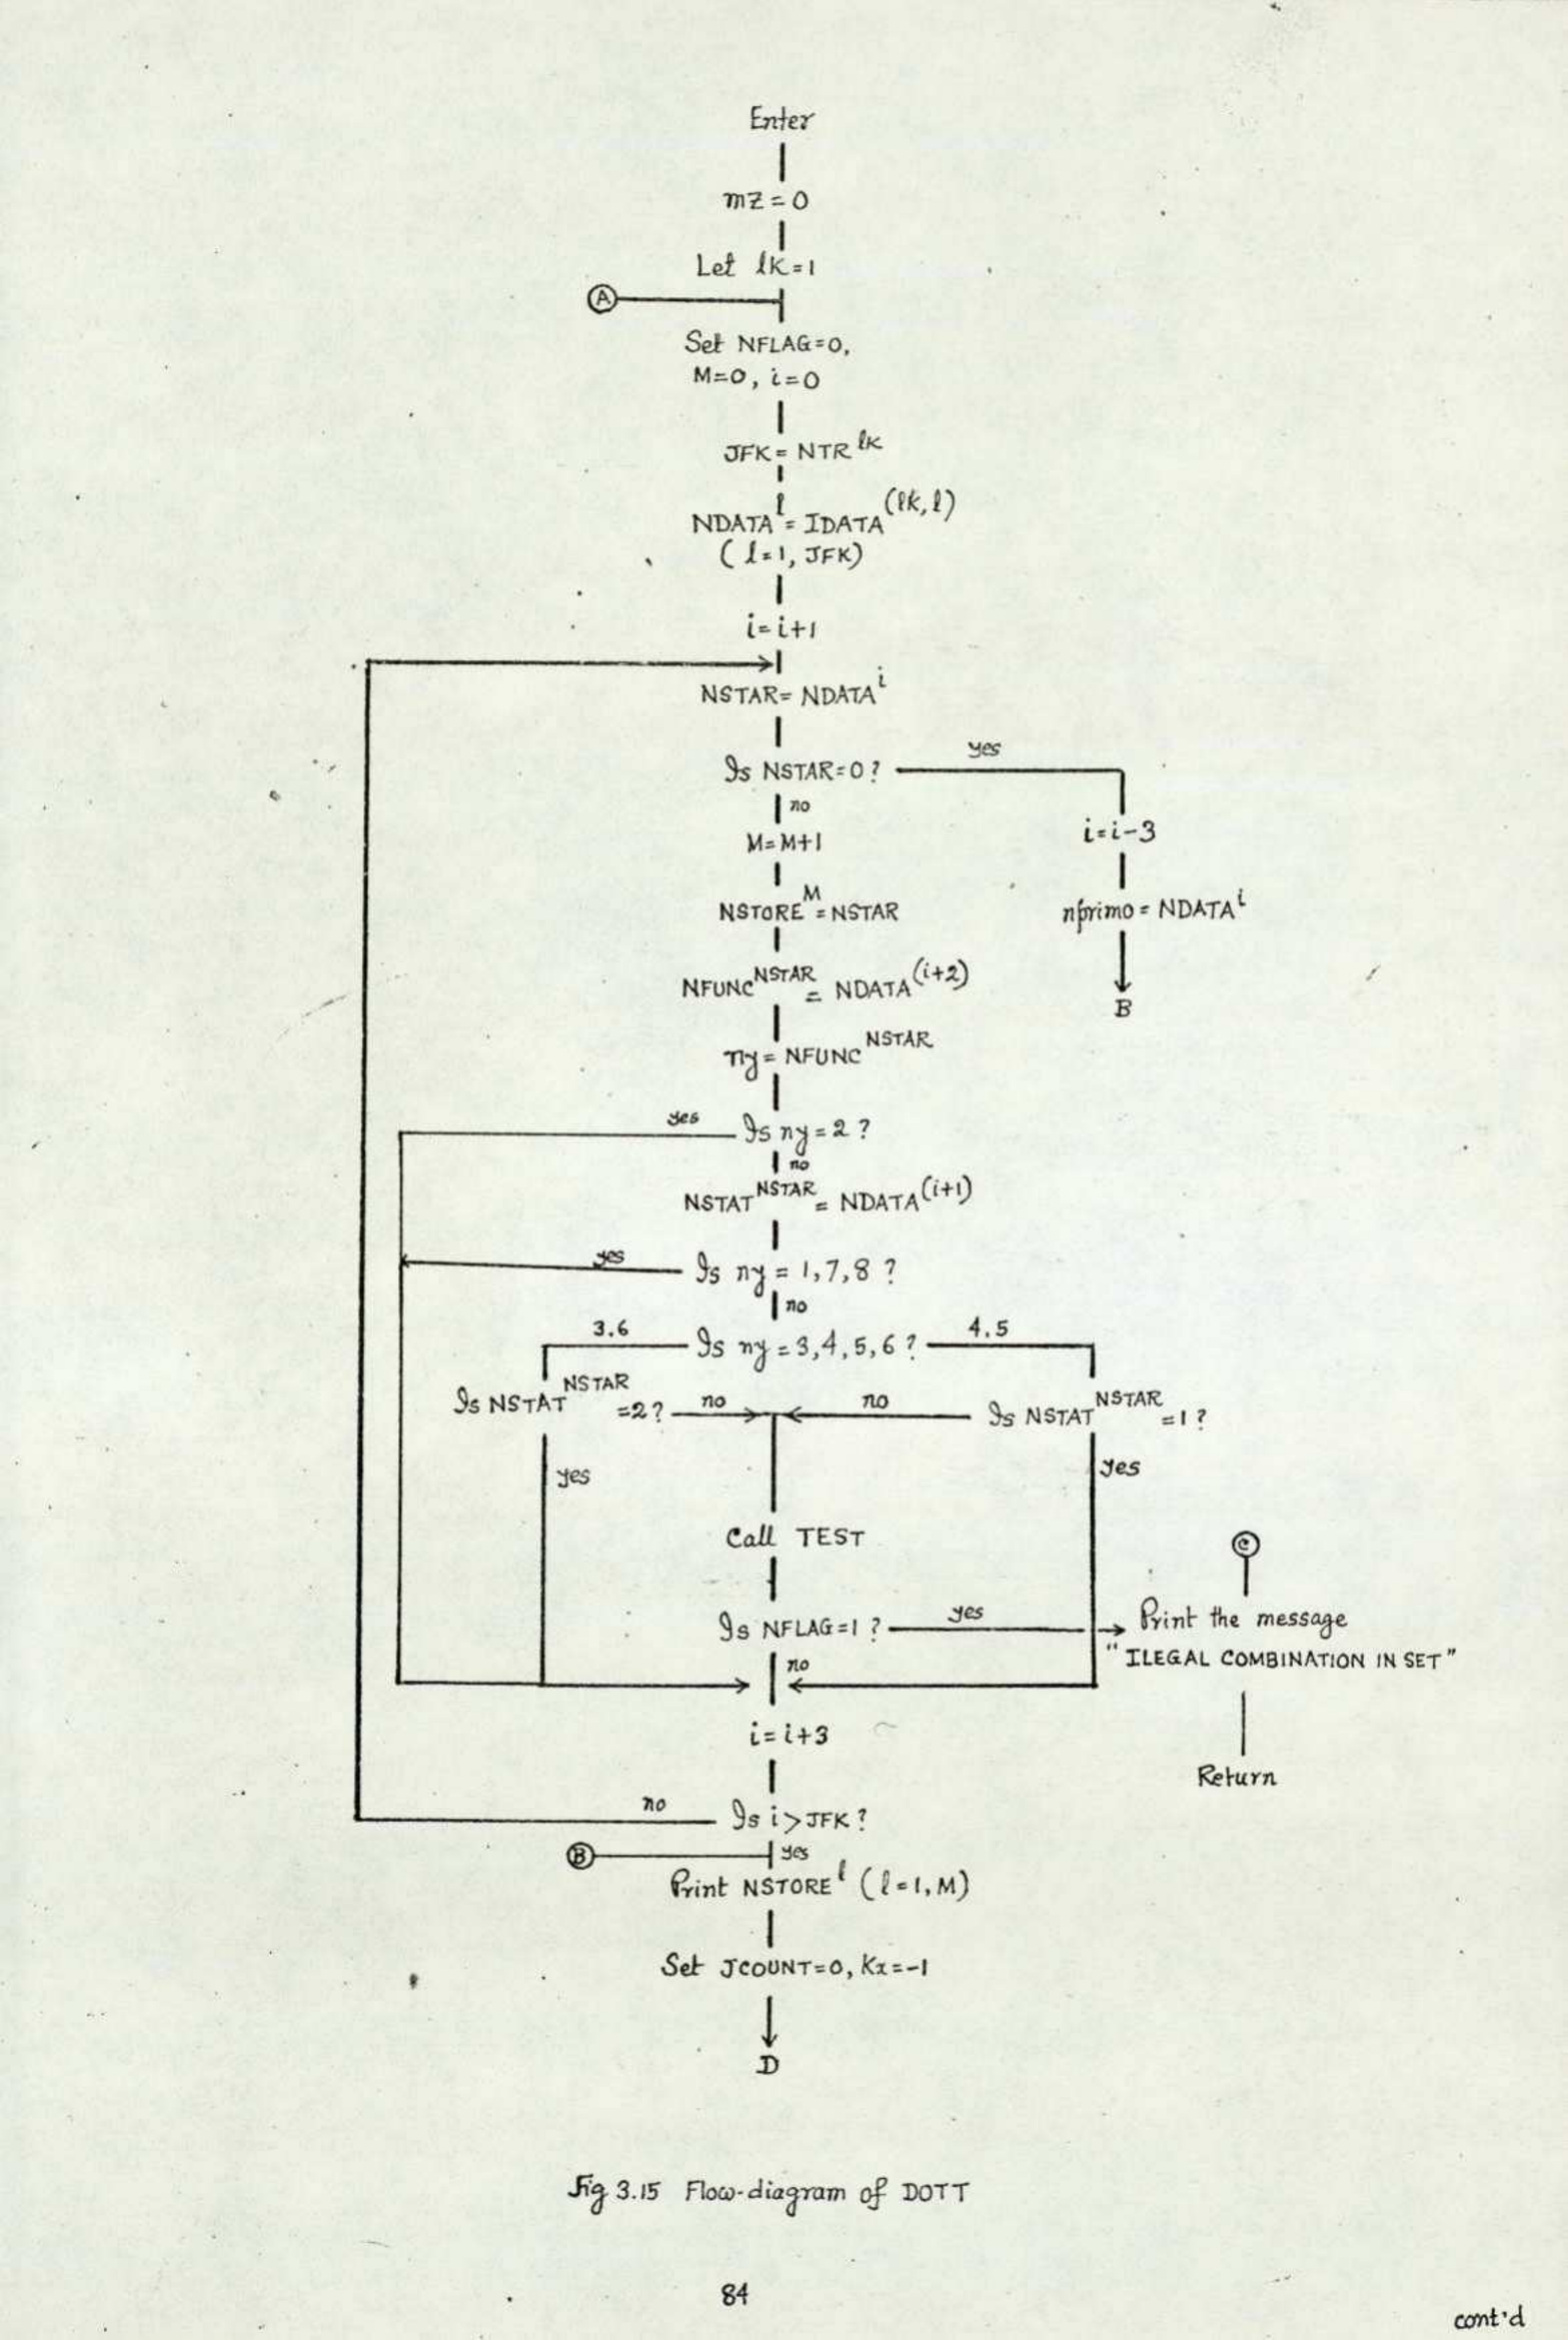 Enter
mZ=0
Let lK=1
A
Set NFLAG=0,
M=0, i=0
JFK= NTR^lK
NDATA^l = IDATA^(lk,l)
(l=1, JFK)
i=i+1
NSTAR= NDATA^i
Is NSTAR=0? yes
no
M=M+1
i=i-3
NSTORE^M = NSTAR
nprimo = NDATA^i
NFUNC^NSTAR = NDATA^(i+2)
B
ny = NFUNC^NSTAR
yes Is ny=2?
no
NSTAT^NSTAR = NDATA^(i+1)
yes Is ny = 1,7,8 ?
no
3.6 Is ny = 3,4,5,6 ? 4.5
Is NSTAT^NSTAR =2? no no Is NSTAT^NSTAR =1?
yes yes
Call TEST
C
Is NFLAG=1 ? yes Print the message
no "ILEGAL COMBINATION IN SET"
i=i+3
Return
no Is i>JFK?
B yes
Print NSTORE^l (l=1,M)
Set JCOUNT=0, Kx=-1
D
Fig 3.15 Flow-diagram of DOTT
84
cont'd